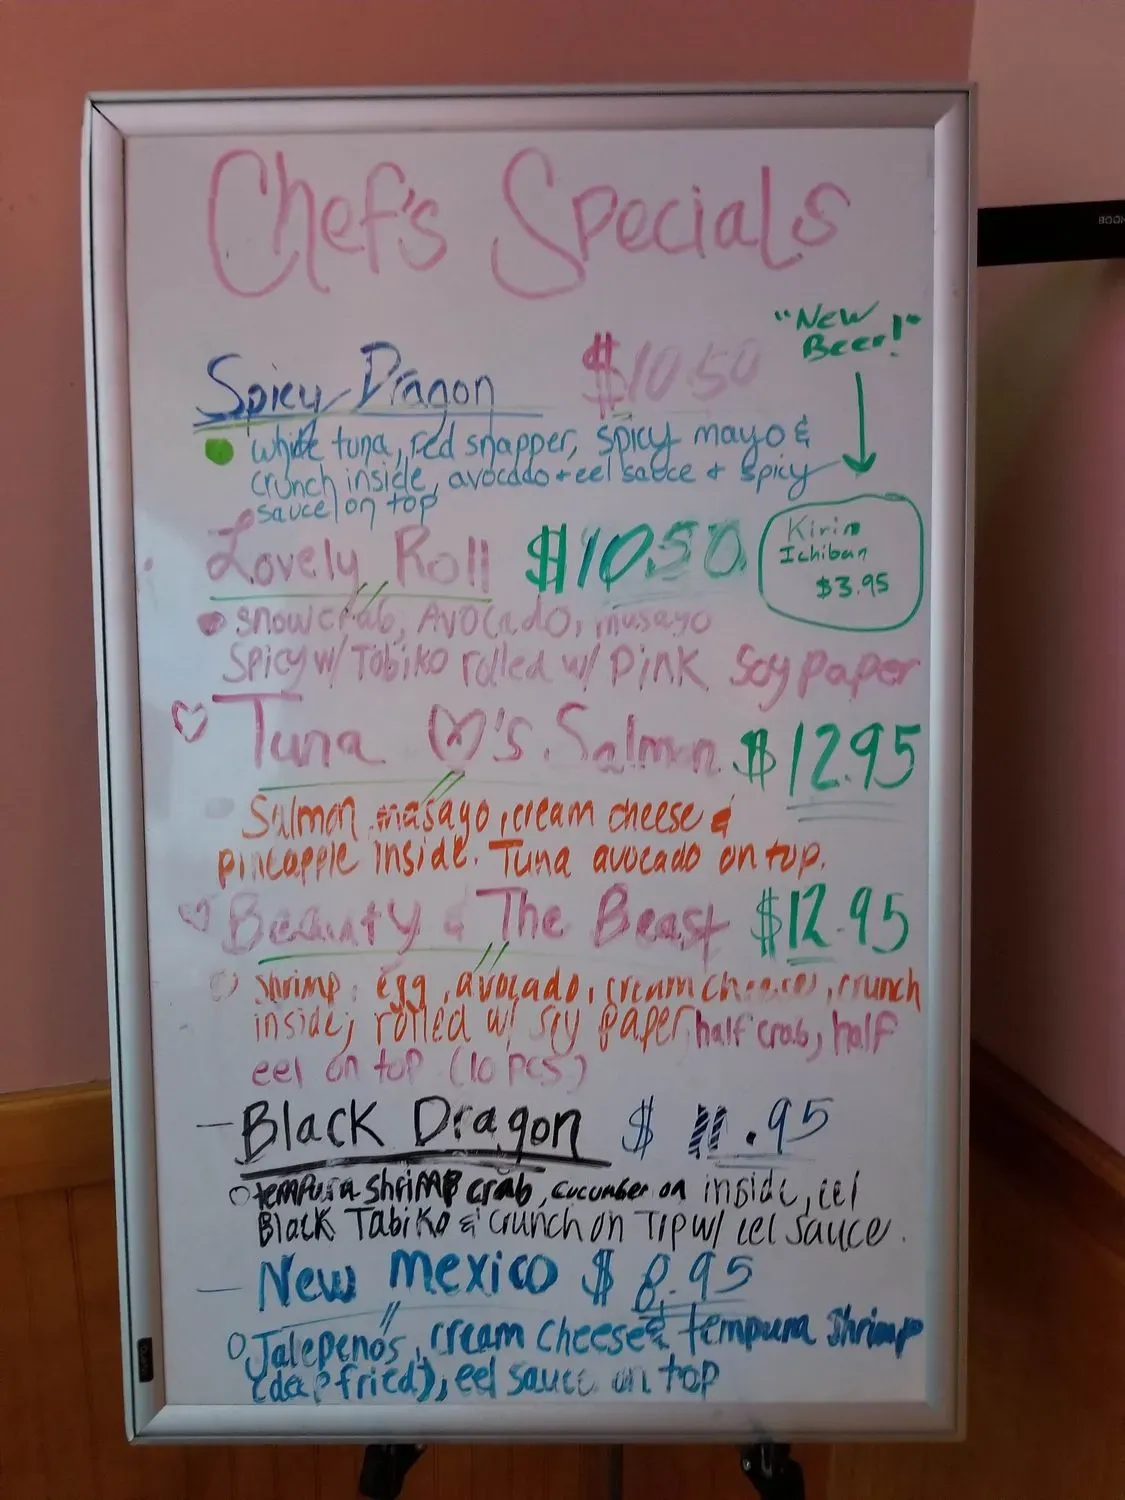 Chef's Specials
"New
Beer!"
Spicy Dragon $10.50
white tuna, red snapper, spicy mayo &
crunch inside, avocado + eel sauce + spicy
sauce on top
Kirin
Ichiban
$3.95
Lovely Roll $10.50
snowcrab, Avocado, masago
spicy w/ Tobiko rolled w/ Pink Soy paper
Tuna ♡'s Salmon $12.95
Salmon, masago, cream cheese &
pineapple inside. Tuna avocado on top.
Beauty & The Beast $12.95
shrimp, egg, avocado, cream cheese, crunch
inside, rolled w/ soy paper, half crab, half
eel on top (10 pcs)
Black Dragon $11.95
tempura shrimp crab, cucumber on inside, eel
Black Tabiko & crunch on Tip w/ eel sauce.
New Mexico $8.95
Jalepenos, cream cheese & tempura shrimp
(deep fried), eel sauce on top